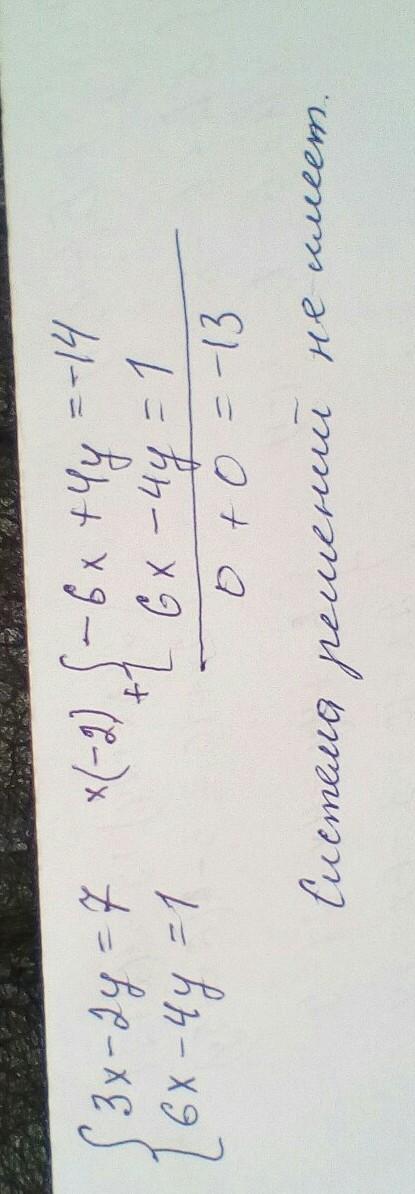 {3x-2y=7 x(-2) {-6x+4y=-14
{6x-4y=1 + {6x-4y=1
0+0=-13
Система решений не имеет.